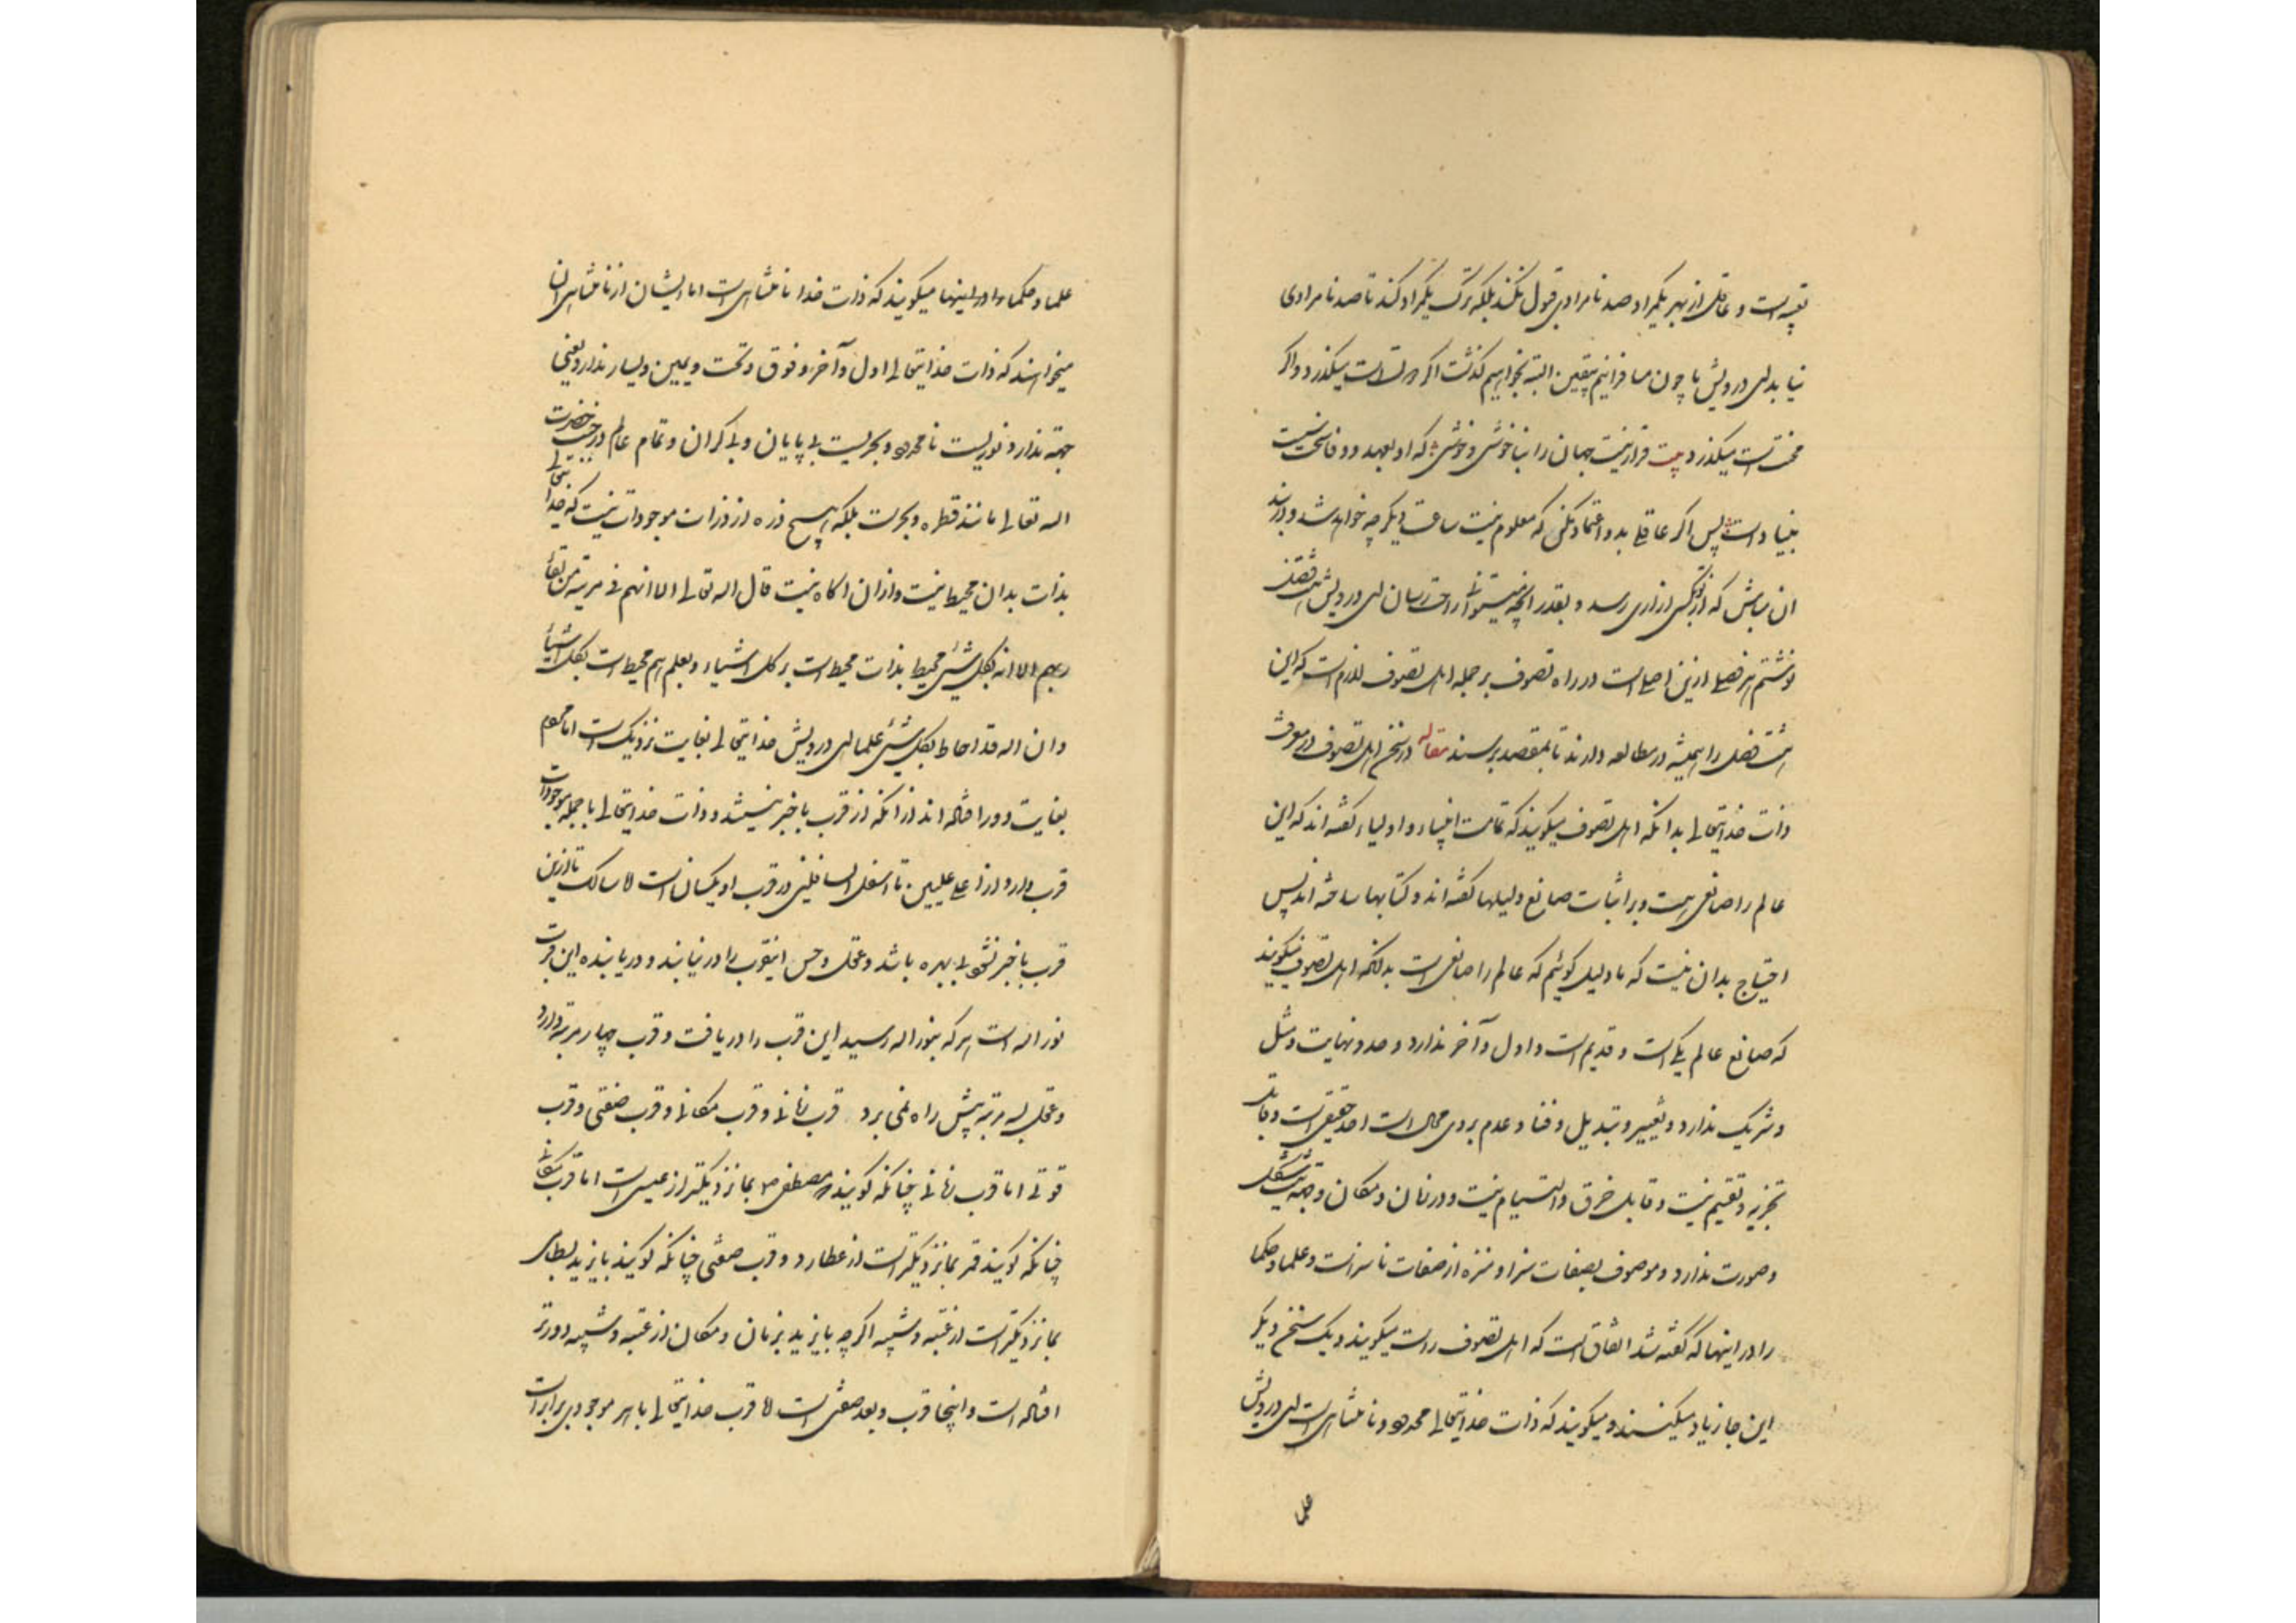 تعبیه است و عاقل از بهر یکمراد صد نامرادی قبول نکند بلکه ترک یکمراد کند تا صد نامرادی
نیاید ای درویش ما چون مسافرانیم بیقین البته بخواهیم گذشت اگر دولت است میگذرد و اگر
محنت است میگذرد بیت قراری نیست جهان را بناخوشی و خوشی که او بعهد و وفا سخت سست
بنیاد است پس اگر عاقلی بدو اعتماد مکن که معلوم نیست ساعت دیگر چه خواهد شد و در بند
آن مباش که از تو بکسی ازاری رسد و بقدر آنچه میتوانی راحت رسان ای درویش هشت فصل
نوشتم هر فصلی ازین اصلی است در راه تصوف بر جمله اهل تصوف لازم است که این
هشت فصل را همیشه در مطالعه دارند تا بمقصد برسند مقاله در سخن اهل تصوف در معرفت
ذات خدایتعالی بدانکه اهل تصوف میگویند که تمامت انبیاء و اولیاء گفته اند که این
عالم را صانعی هست و بر اثبات صانع دلیلها گفته اند و کتابها ساخته اند پس
احتیاج بدان نیست که ما دلیل گوئیم که عالم را صانعی است بدانکه اهل تصوف میگویند
که صانع عالم یکی است و قدیم است و اول و آخر ندارد و حد و نهایت و مثل
و شریک ندارد و تغییر و تبدیل و فنا و عدم بروی محال است احد حقیقی است و قابل
تجزیه و تقسیم نیست و قابل خرق و التیام نیست و در زمان و مکان و جهة نیست شکل
و صورت ندارد و موصوف بصفات سزا و منزه از صفات ناسزاست و علما و حکما
را در اینها که گفته شد اتفاق است که اهل تصوف راست میگویند و یک سخن دیگر
این جا زیاد میکنند و میگویند که ذات خدایتعالی نامحدود و نامتناهی است ای درویش
علما
علما و حکما را در اینها میگویند که ذات خدا نامتناهی است اما ایشان از نامتناهی آن
میخواهند که ذات خدایتعالی اول و آخر و فوق و تحت و یمین و یسار ندارد یعنی
جهة ندارد و نوریست نامحدود و بحریست بی پایان و بی کران و تمام عالم در جنب حضرت
اله تعالی مانند قطره و بحر است بلکه هیچ ذره از ذرات موجودات نیست که خدایتعالی
بذات بدان محیط نیست و ازان اگاه نیست قال اله تعالی الا انهم فی مریة من لقاء
ربهم الا انه بکل شیئ محیط بذات محیط است بر کل اشیاء و بعلم هم محیط است بکل اشیاء
و ان اله قد احاط بکل شیئ علما ای درویش خدایتعالی بغایت نزدیک است اما مردم
بغایت دور افتاده اند از آنکه از قرب با خبر نیستند و ذات خدایتعالی با جمله موجودات
قرب دارد از اعلی علیین تا اسفل السافلین در قرب او یکسان است لا سالک تا ازین
قرب با خبر نشود بی بهره باشد و عقل و حس اینقرب را در نیابند و دریابنده این قرب
نور اله است هر که بنور اله رسید این قرب را دریافت و قرب چهار مرتبه دارد
و عقل بسه مرتبه پیش راه نمی برد قرب زمانی و قرب مکانی و قرب صفتی و قرب
قوتی اما قرب زمانی چنانکه گویند مصطفی ص بما نزدیکتر از عیسی است اما قرب مکانی
چنانکه گویند قمر بما نزدیکتر است از عطارد و قرب صفتی چنانکه گویند بایزید بسطامی
بما نزدیکتر است از عتبه و شیبه اگرچه بایزید بزمان و مکان از عتبه و شیبه دورتر
افتاده است و اینجا قرب و بعد صفتی است لا قرب خدایتعالی با هر موجودی برابر است